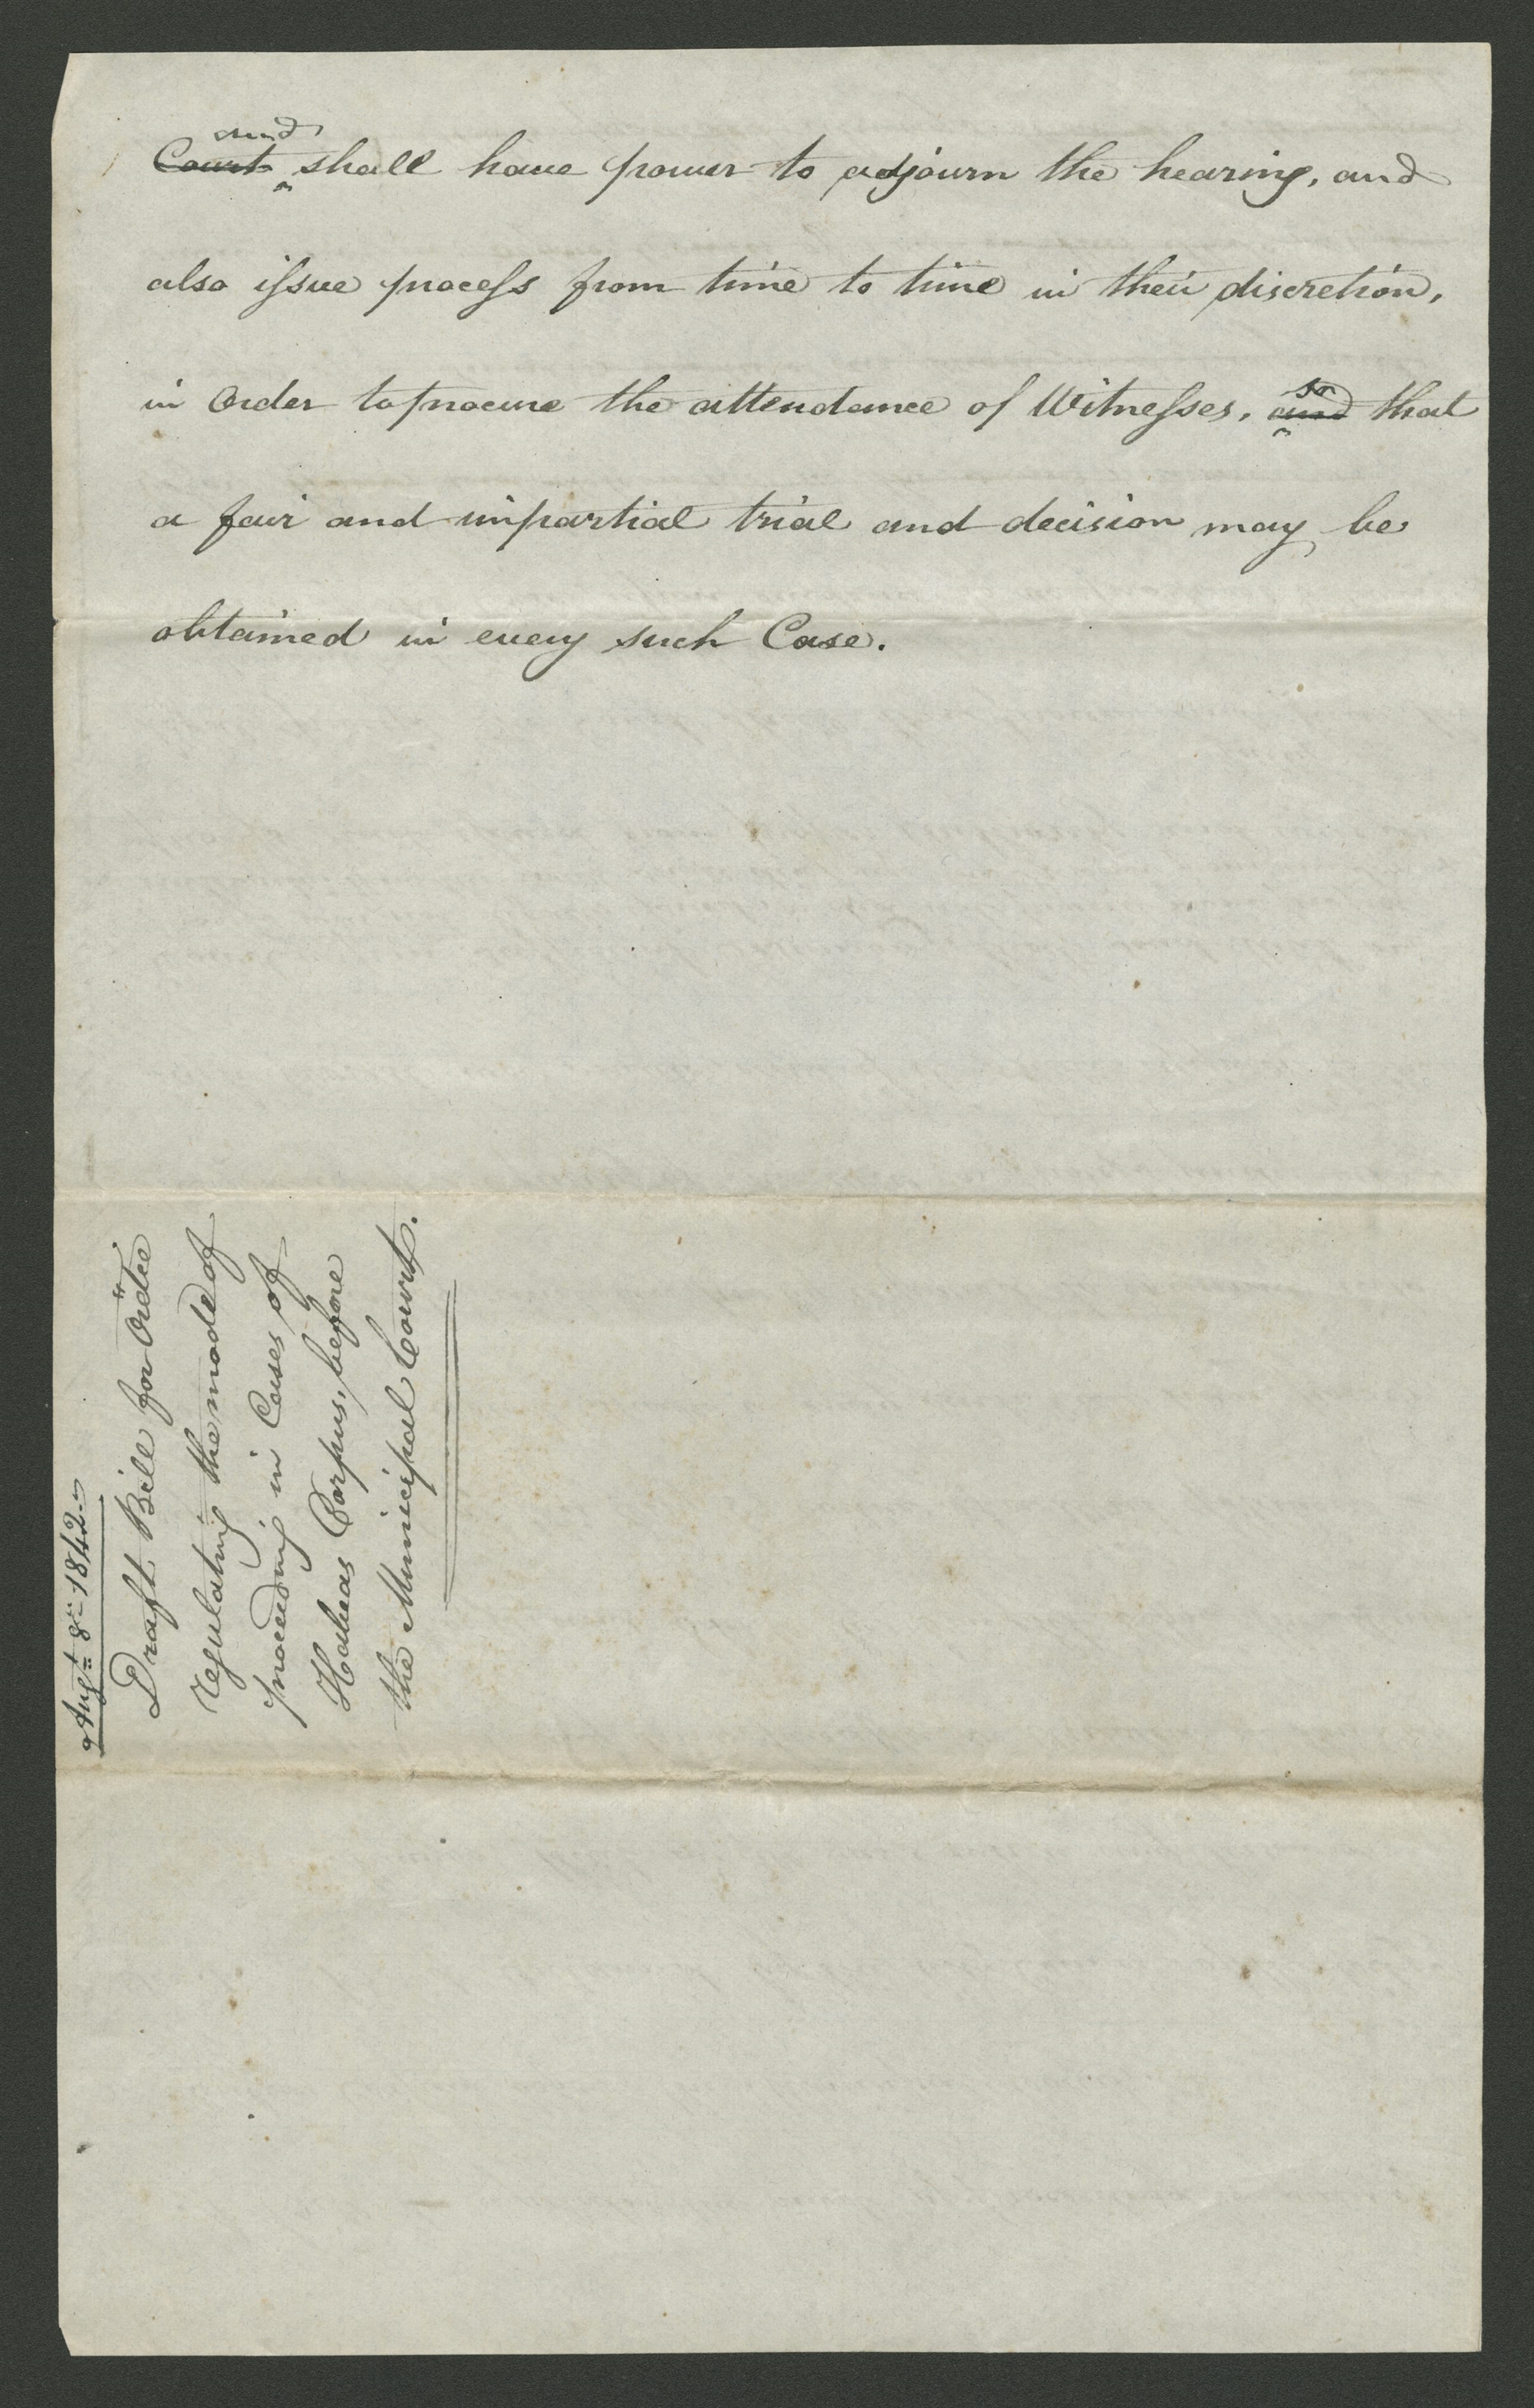 and
Court shall have power to adjourn the hearing, and
also issue process from time to time in their discretion,
so
in Order to procure the attendance of Witnesses, and that
a fair and impartial trial and decision may be
obtained in every such Case.
Augt 8th 1842.
Draft Bill for Ordce
regulating the mode of
proceeding in Cases of
Habeas Corpus, before
the Municipal Court.